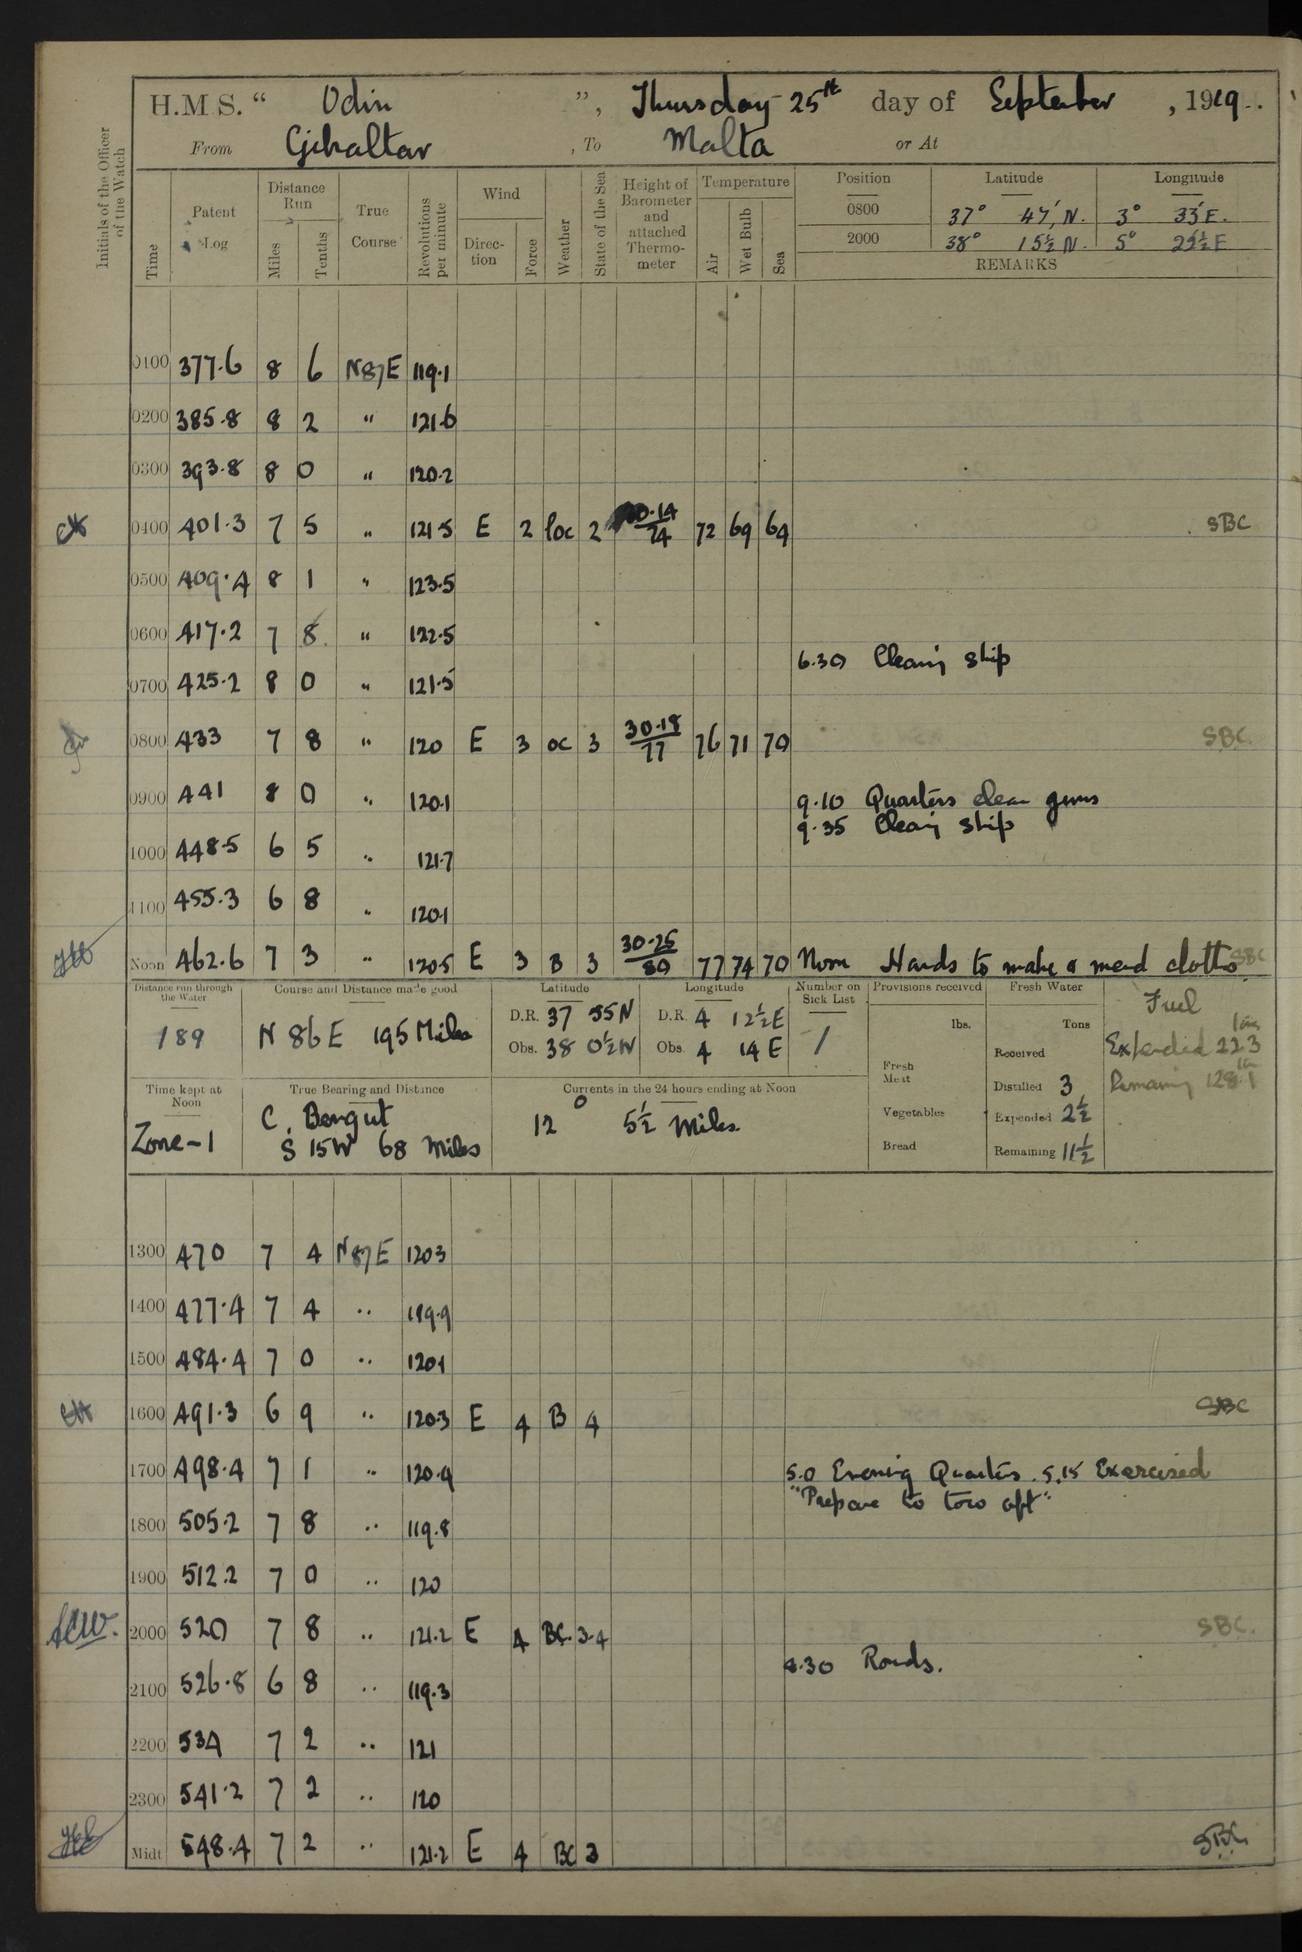 H.M.S. “ Odin ”, Thursday 25th day of September , 1919
From Gibraltar , To Malta or At
Initials of the Officer of the Watch
Time
Patent Log
Distance Run
Miles
Tenths
True Course
Revolutions per minute
Wind
Direc-tion
Force
Weather
State of the Sea
Height of Barometer and attached Thermo-meter
Temperature
Air
Wet Bulb
Sea
Position Latitude Longitude
0800 37° 47', N. 3° 33' E.
2000 38° 15½ N. 5° 22½ E
REMARKS
0100 377.6 8 6 N87E 119.1
0200 385.8 8 2 " 121.6
0300 393.8 8 0 " 120.2
0400 401.3 7 5 " 121.5 E 2 boc 2 30.14/74 72 69 69 SBC
0500 409.4 8 1 " 123.5
0600 417.2 7 8 " 122.5
6.30 Cleang ship
0700 425.2 8 0 " 121.5
0800 433 7 8 " 120 E 3 oc 3 30.18/77 76 71 70 SBC.
0900 441 8 0 " 120.1 9.10 Quarters clean guns
9.35 Cleang ship
1000 448.5 6 5 " 121.7
1100 455.3 6 8 " 120.1
Noon 462.6 7 3 " 120.5 E 3 B 3 30.25/80 77 74 70 Noon Hands to make & mend cloths SBC
Distance run through the Water
189
Course and Distance made good
N 86 E 195 Miles
Latitude
D.R. 37 55 N
Obs. 38 0½ N
Longitude
D.R. 4 12½ E
Obs. 4 14 E
Number on Sick List
1
Provisions received
lbs.
Fresh Meat
Vegetables
Bread
Fresh Water
Tons
Received
Distilled 3
Expended 2½
Remaining 11½
Fuel
tons
Expended 22.3
Remaining 128.1
Time kept at Noon
Zone -1
True Bearing and Distance
C. Bengut
S 15W 68 Miles
Currents in the 24 hours ending at Noon
12° 5½ Miles.
1300 470 7 4 N87E 120.3
1400 477.4 7 4 " 119.9
1500 484.4 7 0 " 120.1
1600 491.3 6 9 " 120.3 E 4 B 4 SBC
1700 498.4 7 1 " 120.9 5.0 Evening Quarters. 5.15 Exercised
"Prepare to tow aft"
1800 505.2 7 8 " 119.8
1900 512.2 7 0 " 120
2000 520 7 8 " 121.2 E 4 BC. 3.4 SBC.
8.30 Rounds.
2100 526.8 6 8 " 119.3
2200 534 7 2 " 121
2300 541.2 7 2 " 120
Midt 548.4 7 2 " 121.2 E 4 BC 3 SBC.